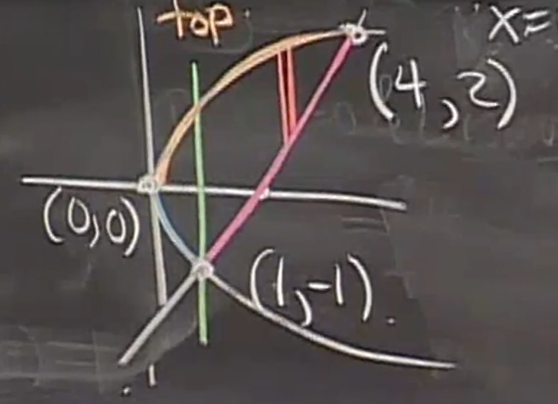 top
x=
(4,2)
(0,0)
(1,-1).